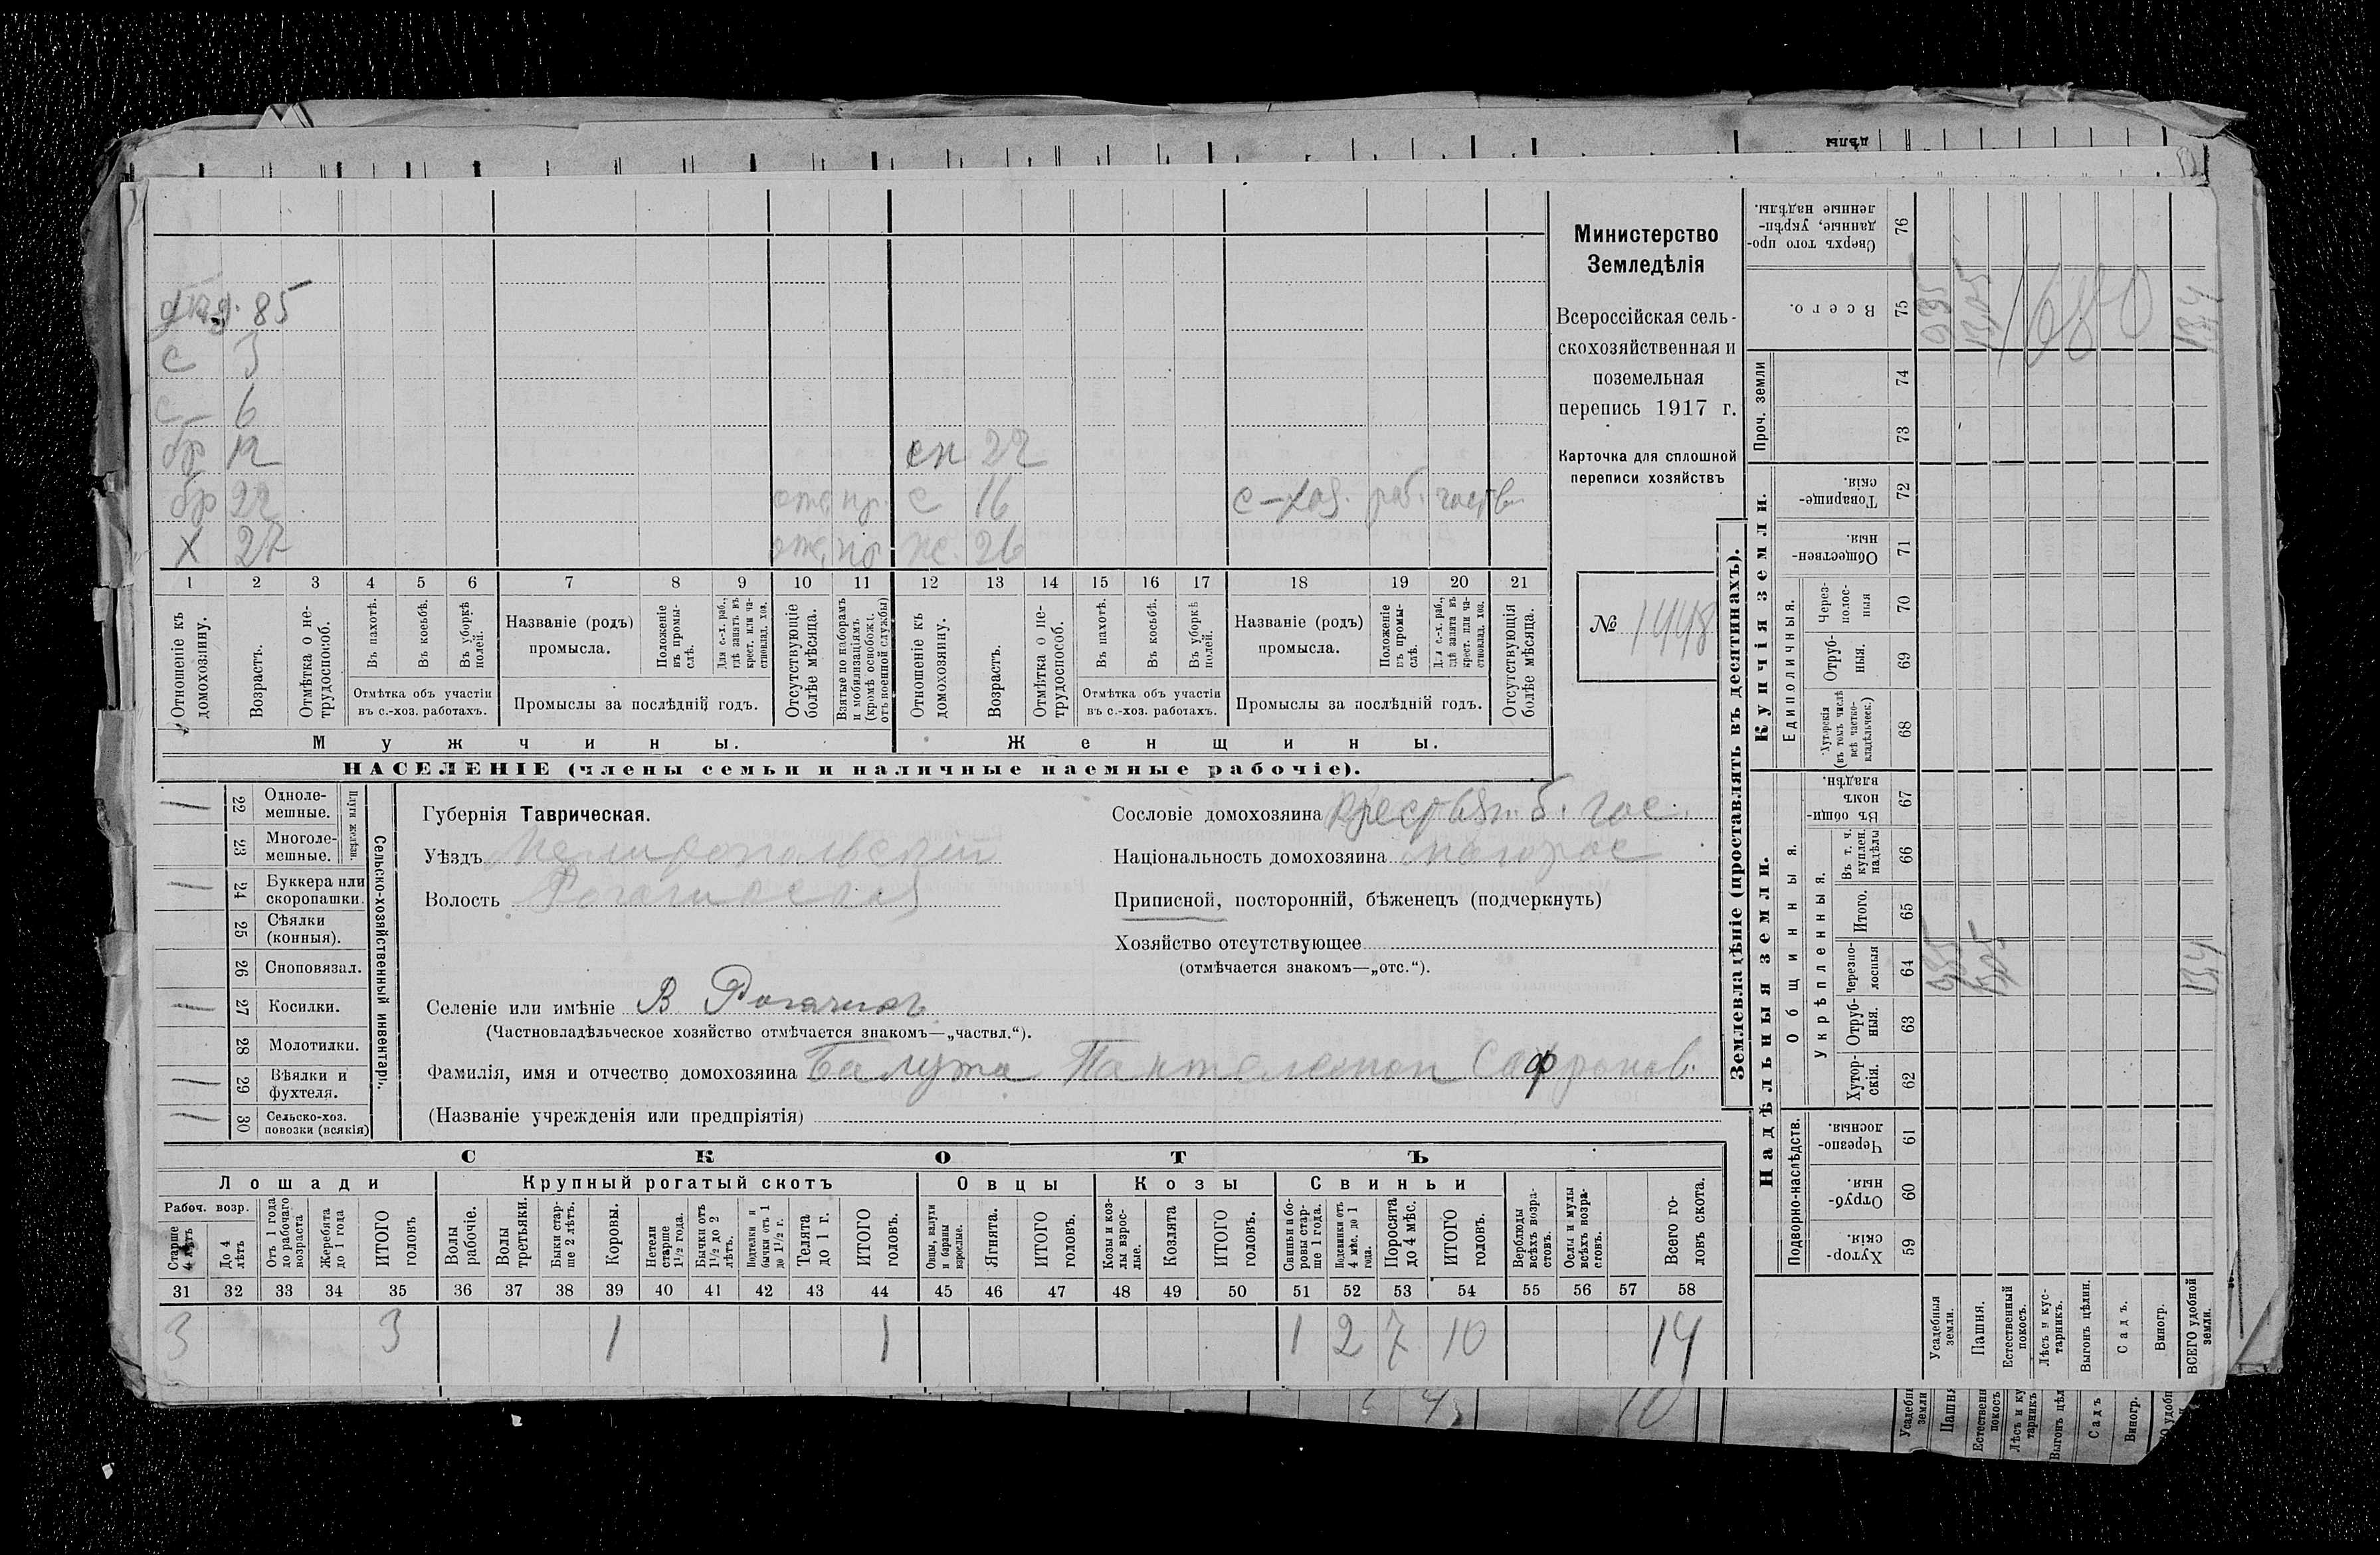 дѣд. 85
с 3
с 6
бр 12
сн 22
бр 22 отс. пр. с 16 с-хоз. раб. частвл.
х 27 отс. по ж. 26
1 2 3 4 5 6 7 8 9 10 11 12 13 14 15 16 17 18 19 20 21
Отношеніе къ домохозяину.
Возрастъ.
Отмѣтка о нетрудоспособ.
Въ пахотѣ.
Въ косьбѣ.
Въ уборкѣ полей.
Отмѣтка объ участіи въ с.-хоз. работахъ.
Названіе (родъ) промысла.
Положеніе въ промыслѣ.
Для с.-х. раб., гдѣ занятъ въ крест. или частновлад. хоз.
Промыслы за послѣдній годъ.
Отсутствующіе болѣе мѣсяца.
Взятые по наборамъ и мобилизаціямъ (кромѣ освобожд. отъ военной службы)
Отношеніе къ домохозяину.
Возрастъ.
Отмѣтка о нетрудоспособ.
Въ пахотѣ.
Въ косьбѣ.
Въ уборкѣ полей.
Отмѣтка объ участіи въ с.-хоз. работахъ.
Названіе (родъ) промысла.
Положеніе въ промыслѣ.
Для с.-х. раб., гдѣ занята въ крест. или частновлад. хоз.
Промыслы за послѣдній годъ.
Отсутствующія болѣе мѣсяца.
Мужчины.
Женщины.
НАСЕЛЕНІЕ (члены семьи и наличные наемные рабочіе).
Министерство
Земледѣлія
Всероссійская сель-
скохозяйственная и
поземельная
перепись 1917 г.
Карточка для сплошной
переписи хозяйствъ
№ 1448
Сельско-хозяйственный инвентарь.
Плуги желѣзн.
22 Однолемешные. 1
23 Многолемешные.
24 Буккера или скоропашки. 1
25 Сѣялки (конныя).
26 Сноповязал.
27 Косилки. 1
28 Молотилки.
29 Вѣялки и фухтеля. 1
30 Сельско-хоз. повозки (всякія) 1
Губернія Таврическая.
Уѣздъ Мелитопольскій
Волость Рогачикская
Сословіе домохозяина крестьян. б. гос.
Національность домохозяина малорос
Приписной, посторонній, бѣженец (подчеркнуть)
Хозяйство отсутствующее
(отмѣчается знакомъ—„отс.“).
Селеніе или имѣніе В Рогачикъ
(Частновладѣльческое хозяйство отмѣчается знакомъ—„частвл.“).
Фамилія, имя и отчество домохозяина Балута Пантелемон Софронов.
(Названіе учрежденія или предпріятія)
СКОТЪ
Лошади Крупный рогатый скотъ Овцы Козы Свиньи
Рабоч. возр.
Старше 4 лѣтъ
До 4 лѣтъ
Отъ 1 года до рабочаго возраста
Жеребята до 1 года
ИТОГО головъ
Волы рабочіе.
Волы третьяки.
Быки старше 2 лѣтъ.
Коровы.
Нетели старше 1½ года.
Бычки отъ 1½ до 2 лѣтъ.
Подтелки и бычки отъ 1 до 1½ г.
Телята до 1 г.
ИТОГО головъ.
Овцы, валухи и бараны взрослые.
Ягнята.
ИТОГО головъ.
Козы и козлы взрослые.
Козлята
ИТОГО головъ.
Свиньи и боровы старше 1 года.
Подсвинки отъ 4 мѣс. до 1 года.
Поросята до 4 мѣс.
ИТОГО головъ.
Верблюды всѣхъ возрастовъ.
Ослы и мулы всѣхъ возрастовъ.
Всего головъ скота.
31 32 33 34 35 36 37 38 39 40 41 42 43 44 45 46 47 48 49 50 51 52 53 54 55 56 57 58
3 3 1 1 1 2 7 10 14
Землевладѣніе (проставлять въ десятинахъ).
Надѣльныя земли.
Купчія земли.
Проч. земли
Подворно-наслѣдств.
Общинныя.
Укрѣпленныя.
Единоличныя.
Хуторскія. 59
Отрубныя. 60
Черезполосныя. 61
Хуторскія. 62
Отрубныя. 63
Черезполосныя 64
Итого. 65
Въ т. ч. куплен. надѣлы 66
Въ общиномъ владѣн. 67
Хуторскія (въ томъ числѣ всѣ частновладѣльческ.) 68
Отрубныя. 69
Черезполосныя 70
Общественныя. 71
Товарищескія. 72
73
74
Всего. 75
Сверхъ того проданные, укрѣпленные надѣлы. 76
1680
Усадебныя земли.
Пашня.
Естественный покосъ.
Лѣсъ и кустарникъ.
Выгонъ цѣлин.
Садъ.
Виногр.
ВСЕГО удобной земли.
10